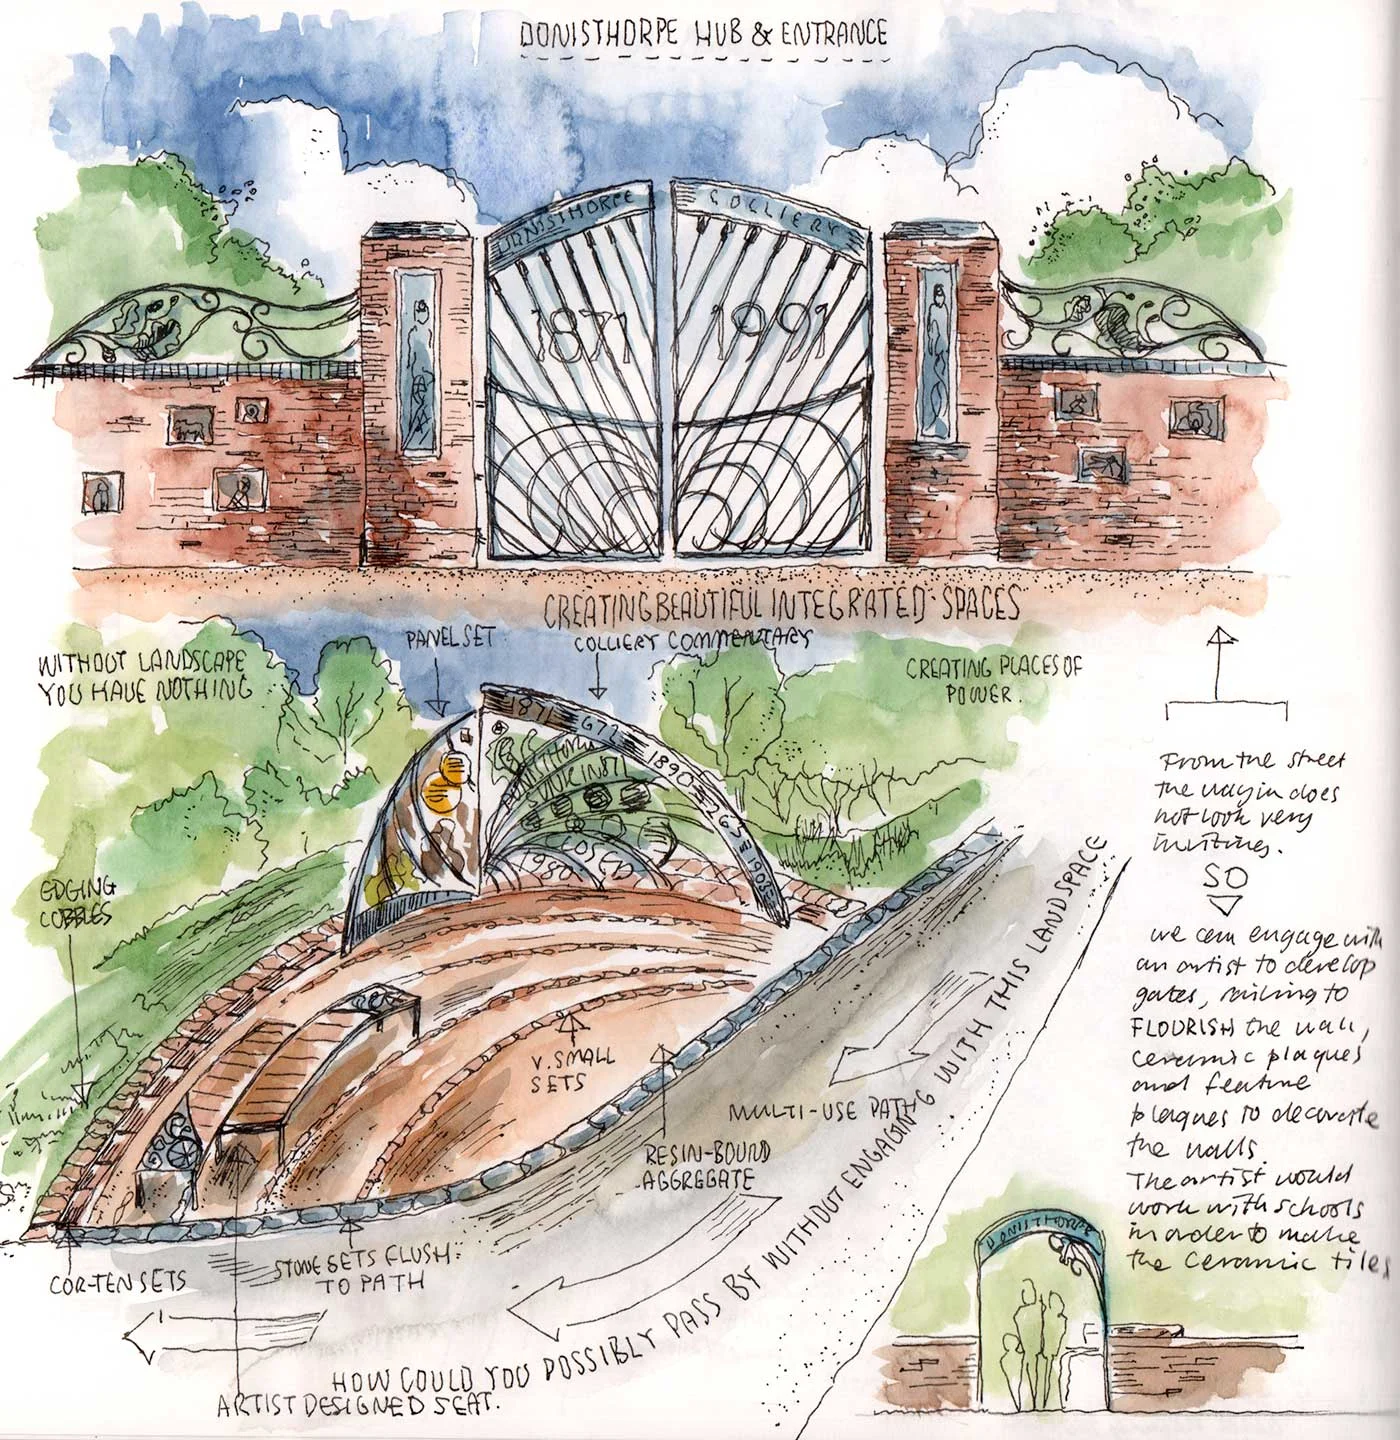 DONISTHORPE HUB & ENTRANCE
DONISTHORPE
COLLIERY
1871
1991
CREATING BEAUTIFUL INTEGRATED SPACES
PANEL SET
COLLIERY COMMENTARY
WITHOUT LANDSCAPE
YOU HAVE NOTHING
CREATING PLACES OF
POWER.
1871
677
1890
263
1903
CLOSED
1980
EDGING
COBBLES
V. SMALL
SETS
MULTI-USE PATH
RESIN-BOUND
AGGREGATE
STONE SETS FLUSH
TO PATH
COR-TEN SETS
HOW COULD YOU POSSIBLY PASS BY WITHOUT ENGAGING WITH THIS LANDSPACE
ARTIST DESIGNED SEAT.
From the street
the way in does
not look very
inviting.
SO
we can engage with
an artist to develop
gates, railing to
FLOURISH the wall,
ceramic plaques
and feature
plaques to decorate
the walls.
The artist would
work with schools
in order to make
the ceramic tiles
DONISTHORPE